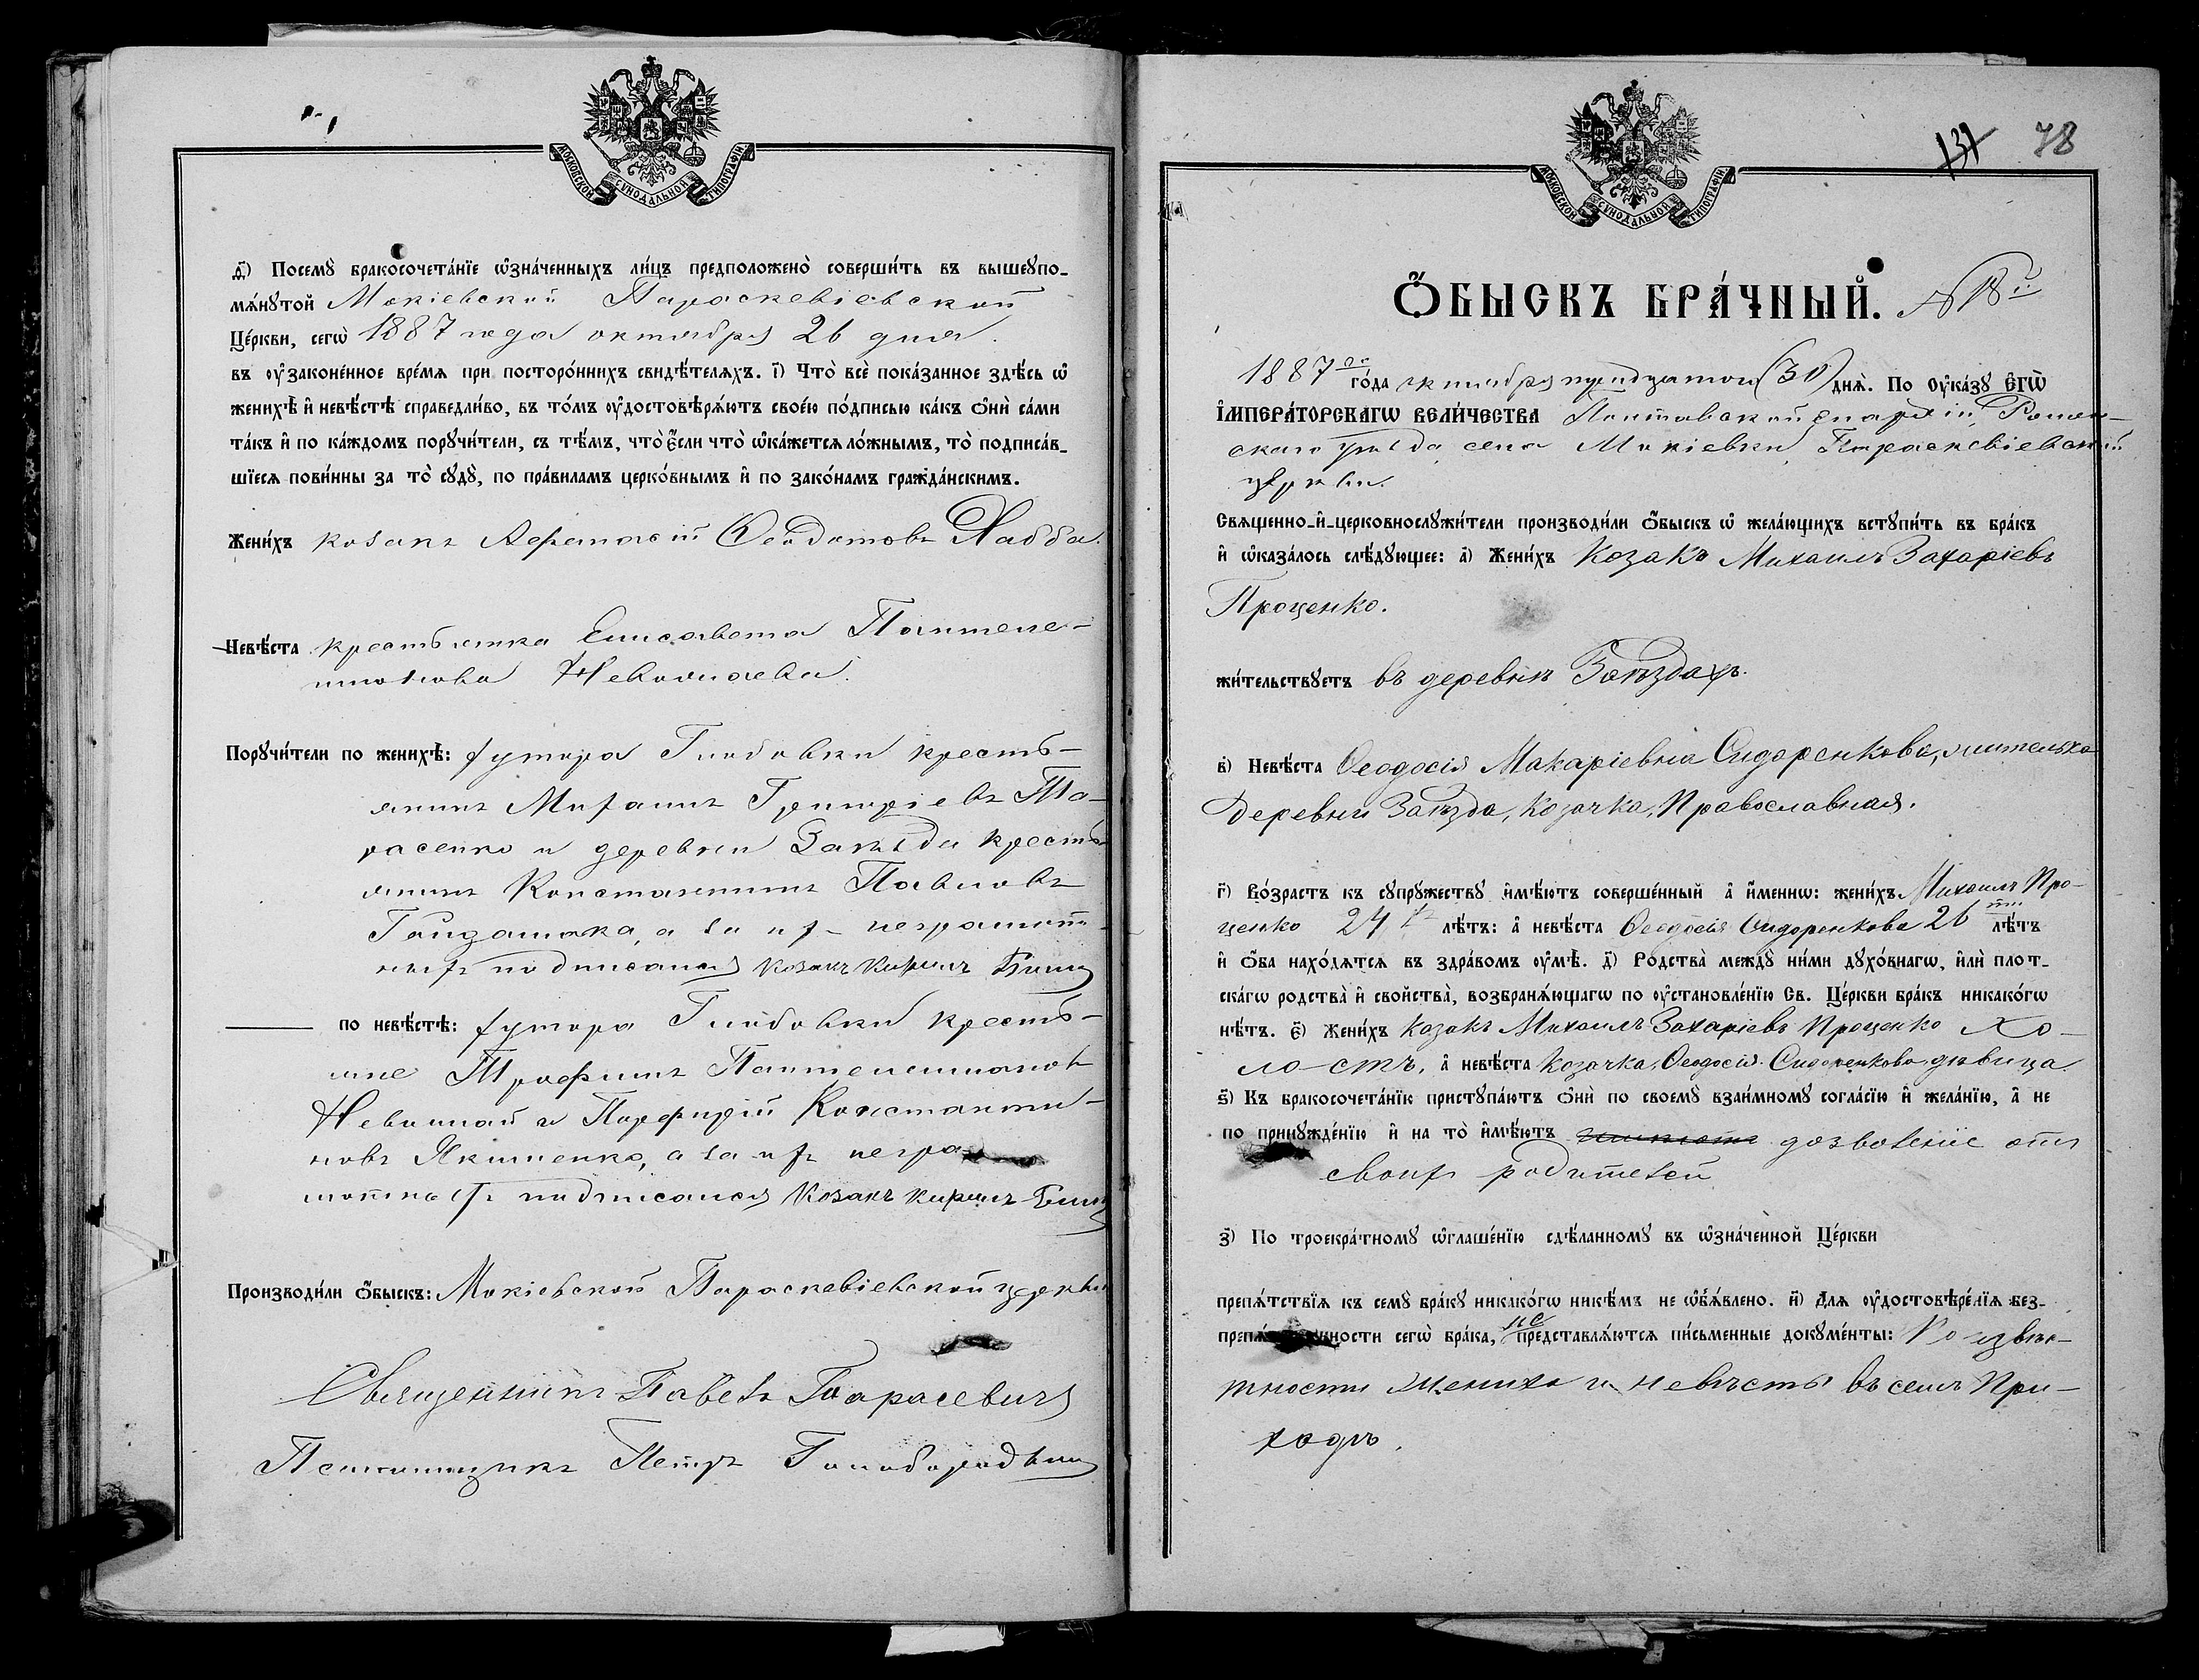 МОСКОВСКОЙ СѴНОДАЛЬНОЙ ТИПОГРАФІИ
д҃і) Посемꙋ̀ бракосочета́нїе ѡ҆зна́ченныхъ ли́цъ предположено̀ соверши́ть въ вышеꙋпо-
мѧ́нꙋтой Мокіевской Параскевіевской
Це́ркви, сегѡ̀ 1887 года октября 26 дня.
въ ᲂу҆законе́нное вре́мѧ при посторо́ннихъ свидѣ́телѧхъ. і҃) Что̀ всѐ пока́занное здѣ́сь ѡ҆
женихѣ̀ и҆ невѣ́стѣ справедли́во, въ то́мъ ᲂу҆достовѣрѧ́ютъ свое́ю по́дписью ка́къ ѻ҆нѝ са́ми
та́къ и҆ по ка́ждомъ порꙋчи́тели, съ тѣ́мъ, что̀ є҆́сли что̀ ѡ҆ка́жетсѧ ло́жнымъ, то̀ подписа́в-
шїесѧ пови́нны за то̀ сꙋдꙋ̀, по пра́виламъ церко́внымъ и҆ по зако́намъ гражда́нскимъ.
Жени́хъ козакъ Афанасій Ѳеодотовъ Хабба.
Невѣ́ста крестьянка Елисавета Пантеле-
имонова
Порꙋчи́тели по женихѣ̀: хутора Глобовки кресть-
янинъ Михаилъ Григоріевъ Та-
расенко и деревни Заѣзда кресть-
янинъ Константинъ Павловъ
Гайдамака, а за ихъ неграмот-
ныхъ подписался козакъ Кирилъ
по невѣ́стѣ: хутора Глобовки кресть-
яне Трофимъ Пантелеимоновъ
и Порфирій Константи-
новъ Якименко, а за ихъ негра-
мотныхъ подписался козакъ Кирилъ
Производи́ли ѻ҆́быскъ: Мокіевской Параскевіевской церкви
Священникъ Павелъ Тарасевичъ
Псаломщикъ Петръ
МОСКОВСКОЙ СѴНОДАЛЬНОЙ ТИПОГРАФІИ
131 78
Ѻ҆́БЫСКЪ БРА́ЧНЫЙ. № 18й
1887го го́да октября тридцатого (30) днѧ̀. По ᲂу҆ка́зꙋ Є҆ГѠ̀
І҆МПЕРА́ТОРСКАГѠ ВЕЛИ́ЧЕСТВА Полтавской епархіи, Ромен-
скаго уѣзда села Мокіевки Параскевіевской
церкви.
Свѧще́нно-и҆-церковнослꙋжи́тели производи́ли ѻ҆́быскъ ѡ҆ жела́ющихъ встꙋпи́ть въ бра́къ
и҆ ѡ҆каза́лось слѣ́дꙋющее: а҃) Жени́хъ Козакъ Михаилъ Захаріевъ
Проценко.
жи́тельствꙋетъ въ деревнѣ Заѣздахъ.
в҃) Невѣ́ста Ѳеодосія Макаріевна Сидоренкова, жителька
деревни Заѣзда, Козачка, Православная.
г҃) Во́зрастъ къ сꙋпрꙋжествꙋ и҆мѣ́ютъ соверше́нный а҆̀ и҆́меннѡ: жени́хъ Михаилъ Про-
ценко 24х лѣ́тъ: а҆̀ невѣ́ста Ѳеодосія Сидоренкова 26ти лѣ́тъ
и҆ ѻ҆́ба нахо́дѧтсѧ въ здра́вомъ ᲂу҆мѣ̀. д҃) Ро́дства̀ междꙋ̀ ни́ми дꙋхо́внагѡ, и҆лѝ плот-
ска́гѡ родства̀ и҆ свойства̀, возбранѧ́ющагѡ по ᲂу҆становле́нїю Св. Це́ркви бра́къ никако́гѡ
нѣ́тъ. є҃) Жени́хъ Козакъ Михаилъ Захаріевъ Проценко хо-
лостъ, а҆̀ невѣ́ста Козачка Ѳеодосія Сидоренкова дѣвица
ѕ҃) Къ бракосочета́нїю пристꙋпа́ютъ ѻ҆нѝ по своемꙋ̀ взаи́мномꙋ согла́сїю и҆ жела́нїю, а҆̀ не
по принꙋжде́нїю и҆ на то̀ и҆мѣ́ютъ дозволеніе отъ
своихъ родителей
з҃) По троекра́тномꙋ ѡ҆глаше́нїю сдѣ́ланномꙋ въ ѡ҆зна́ченной Це́ркви
препѧ́тствїѧ къ семꙋ̀ бра́кꙋ никако́гѡ никѣ́мъ не ѡ҆б̾ѧ́влено. и҃) Длѧ ᲂу҆достовѣре́нїѧ без-
препѧ́тственности сегѡ̀ бра́ка, не представлѧ́ютсѧ пи́сьменные докꙋме́нты: По извѣс-
тности жениха и невѣсты въ семъ При-
ходѣ.